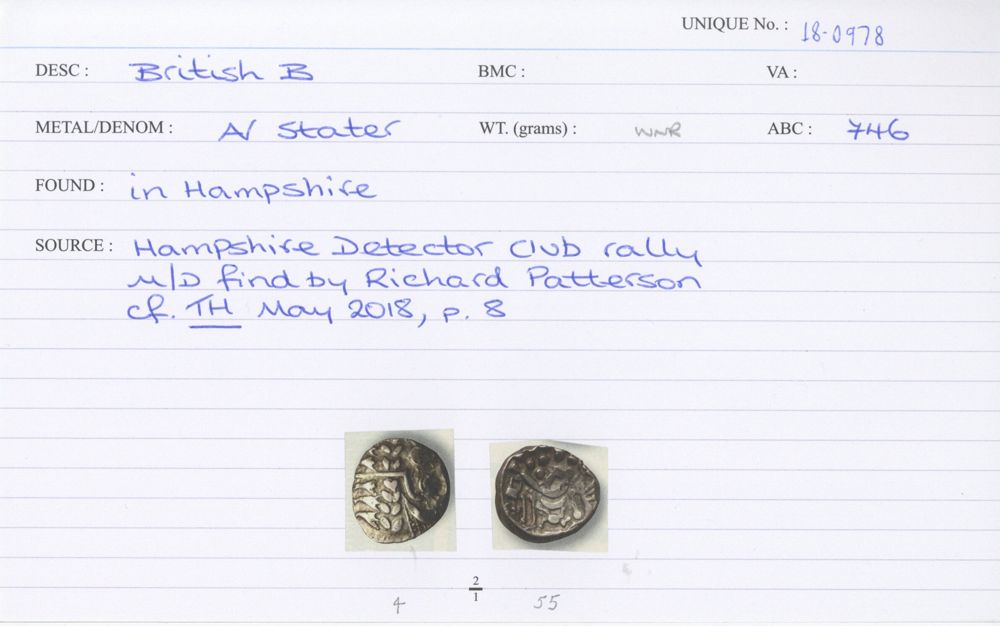 UNIQUE No. : 18-0978
DESC : British B BMC : VA :
METAL/DENOM : A/ stater WT. (grams) : WNR ABC : 746
FOUND : in Hampshire
SOURCE : Hampshire Detector Club rally
M/D find by Richard Patterson
cf. TH May 2018, p. 8
2
1
4 55